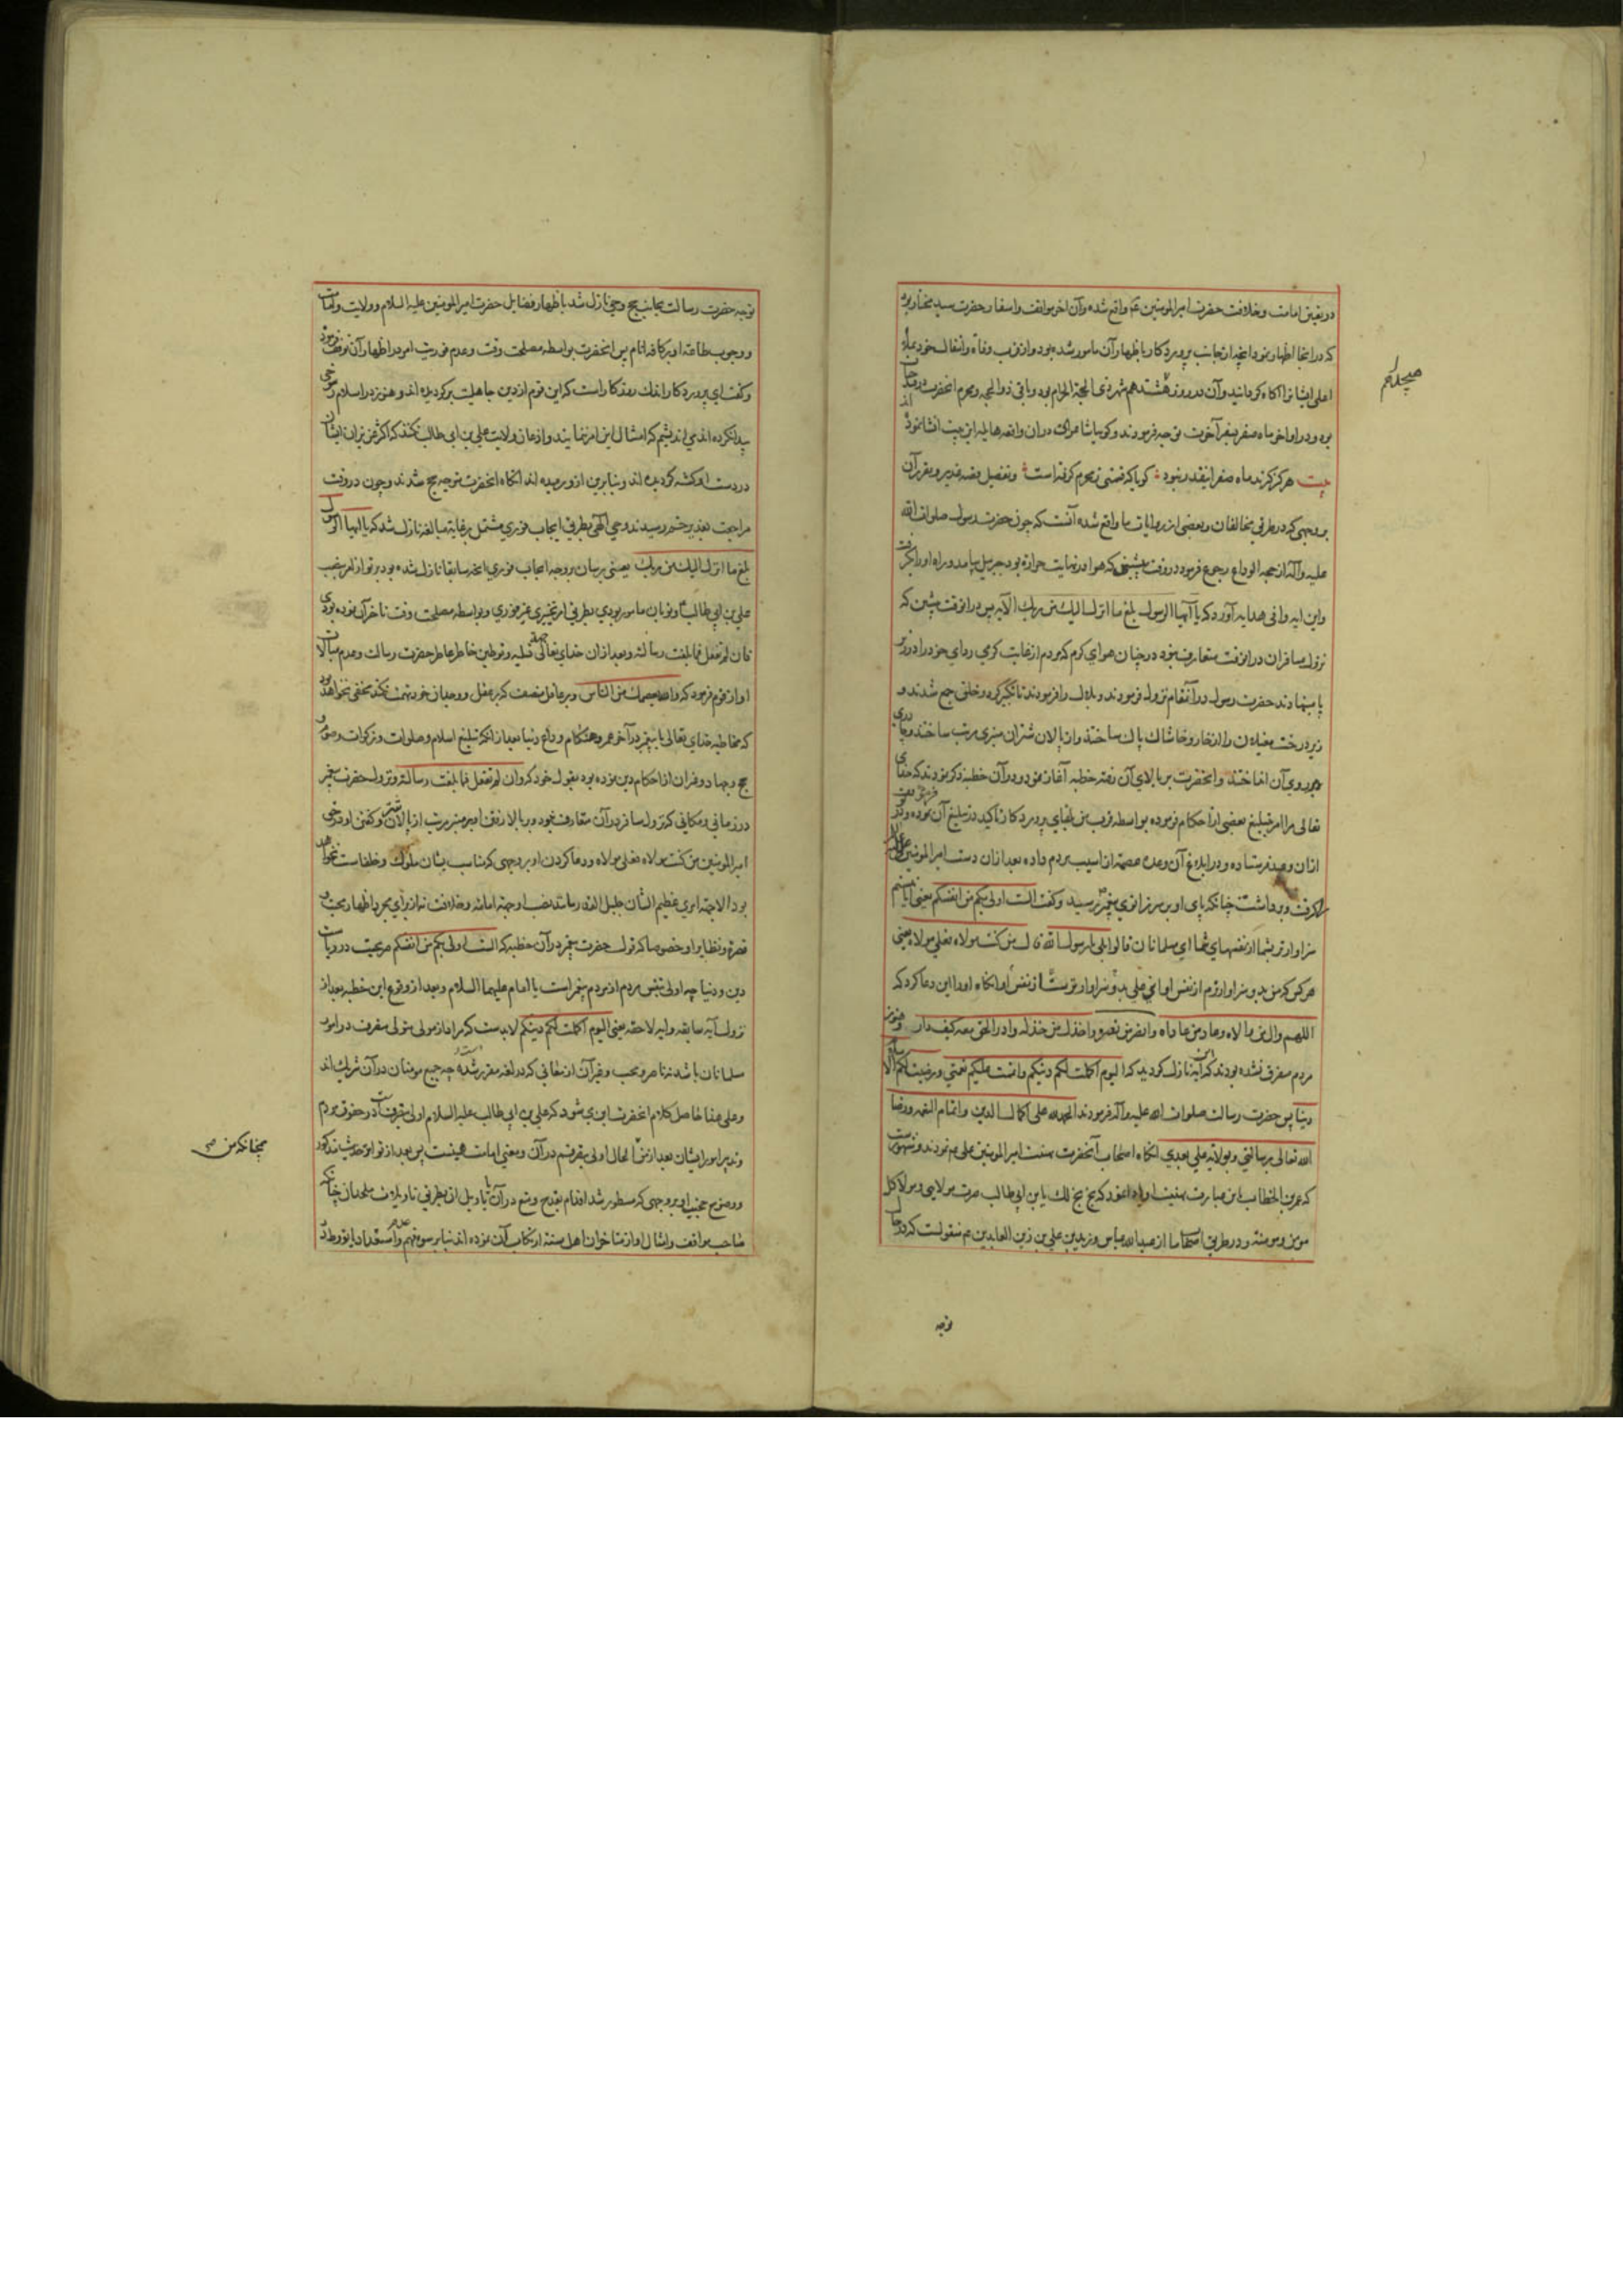 در تعیین امامت و خلافت حضرت امیرالمومنین عم واقع شده وآن اخر مواقف واسفار حضرت سید مختار بود
که در انجا اظهار نمود انچه از جانب پروردکار باظهار آن مامور شده بود واز قرب وفاة وانتقال خود بملاء
اعلی ایشانرا آکاه کردانید وآن در روز هشتدهم شهر ذی الحجة الحرام بود وباقی ذوالحجه ومحرم انحضرت در حیات
بود ودر اواخر ماه صفر بسفر آخرت توجه فرمودند وکویا شاعر اک دران واقعه هایله این بیت انشا نموده
بیت هرکز کزند ماه صفر اینقدر نبود کویا که فتنی ز محرم کرفته است وتفصیل قصه غدیر وتقریر آن
بر وجهی که در طرق مخالفان وبعضی از روایات ما واقع شده آنست که چون حضرت رسول صلوات الله
علیه وآله از حجة الوداع رجوع فرمود در وقت پیشینی که هوا در نهایت حرارة بود جبرییل بیامد وراه او را بکرفت
واین ایه وافی هدایه آورد که یا آیها الرسول بلغ ما انزل الیک من ربک الآیه پس در انوقت پیشین که
نزول مسافران در انوقت متعارف نبود در چنان هوای کرم که مردم از غایت کرمی ردای خود را در زیر
پا مینهادند حضرت رسول در آنمقام نزول فرمودند وبلال را فرمودند تا تکبیر کرد وخلق جمع شدند و
زیر درخت مغیلان را از خار وخاشاک پاک ساختند واز پالان شتران منبری مرتب ساختند وجادری
بر روی آن انداختند وانحضرت بر بالای آن رفته خطبه آغاز نمود ودر آن خطبه ذکر نمودند که خدای
تعالی مرا امر بتبلیغ بعضی از احکام فرموده بواسطه قرب من بلقای پروردکار تاکید در تبلیغ آن نموده و
ازان وعید فرستاده ودر ابلاغ آن وعده عصمة از اسیب مردم داده بعد ازان دست امیرالمومنین علی
را کرفت وبرداشت چنانکه پای او برابر زانوی پیغمبر رسید وکفت الست اولی بکم من انفسکم یعنی ایا نیستم
سزاوارتر بشما از نفسهای شما ای مسلمانان قالوا بلی یا رسول الله قال من کنت مولاه فعلی مولاه یعنی
هر کس که من بدو سزاوارترم از نفس او پس علی بدو سزاوارترست از نفس او انکاه او را این دعا کرد که
اللهم وال من والاه وعاد من عاداه وانصر من نصره واخذل من خذله وادر الحق معه کیف دار وهنوز
مردم متفرق نشده بودند که این آیه نازل کردید که الیوم اکملت لکم دینکم واتممت علیکم نعمتی ورضیت لکم الاسلام
دینا پس حضرت رسالت صلوات الله علیه وآله فرمودند الحمد لله علی اکمال الدین واتمام النعمه ورضا
الله تعالی برسالتی وبولایة علی بعدی انکاه اصحاب آنحضرت تهنیت امیرالمومنین علی عم نمودند ومشهورست
که عمر بن الخطاب این عبارت تهنیت او ادا نمود که بخ بخ لک یا بن ابی طالب صرت مولای ومولا کل
مومن ومومنة ودر طریق اصحاب ما از عبدالله عباس وزید بن علی بن زین العابدین عم منقولست که در حال
هیجدهم
توجه
توجه حضرت رسالت بجانب حج وحی نازل شد باظهار فضایل حضرت امیرالمومنین علیه السلام وولایت وامامت
ووجوب طاعة او بر کافه انام پس انحضرت بواسطه مصلحت وقت وعدم فوریت امر در اظهار آن توقف فرمود
وکفت ای پروردکار اندک روزکاراست که این قوم از دین جاهلیت برکردیده اند وهنوز در اسلام رسوخی
پیدا نکرده اند می اندیشم که امتثال این امر ننمایند واذعان ولایت علی بن ابی طالب نکنند که اکثر عزیزان ایشان
در دست او کشته کردیده اند وبنابرین ازو رمیده اند انکاه انحضرت متوجه حج شدند وچون در وقت
مراجعت بغدیر خم رسیدند وحی آلهی بطریق ایجاب فوری مشتمل برغایة مبالغه نازل شد که یا ایها الرسول
بلغ ما انزل الیک من ربک یعنی برسان بر وجه ایجاب فوری انچه سابقا نازل شده بود بر تو از امر نصب
علی بن ابی طالب وتو بان مامور بودی بطریق امر تخییری غیر فوری وبواسطه مصلحت وقت تاخر آن نموده بودی
فان لم تفعل فما بلغت رسالته وبعد ازان خدای تعالی جهة تسلیه وتوطین خاطر عاطر حضرت رسالت وعدم مبالات
او از قوم فرمود که والله یعصمک من الناس وبر عاقل منصف که بر عقل ووجدان خود تهمت نکند مخفی نخواهد بود
که مخاطبه خدای تعالی با پیغمبر در آخر عمر وهنکام وداع دنیا بعد از انکه تبلیغ اسلام وصلوات وزکوات وصوم و
حج وجهاد وغیران از احکام دین نموده بود بقول خود که وان لم تفعل فما بلغت رسالته ونزول حضرت پیغمبر
در زمانی ومکانی که نزول مسافر در آن متعارف نبود وبر بالا رفتن او بر منبر مرتب از پالان شتر وکفتن او در حق
امیرالمومنین من کنت مولاه فعلی مولاه ودعا کردن او بر وجهی که مناسب بشان ملوک وخلفاست نخواهد
بود الا جهة امری عظیم الشان جلیل القدر مانند نصب او جهة امامة وخلافت نه از برای مجرد اظهار محبت و
نصرة ونظایر او خصوصا که قول حضرت پیغمبر در آن خطبه که الست اولی بکم من انفسکم صریحست در ریاست
دین ودنیا چه اولی بنفس مردم از مردم پیغمبر است یا امام علیهما السلام وبعد از وقوع این خطبه بعد از
نزول آیه سابقه وایه لاحقه یعنی الیوم اکملت لکم دینکم لابدست که مراد از مولی متولی متصرف در امور
مسلمانان باشد نه ناصر ومحب وغیر آن از معانی که در لغه مقرر شده چه جمیع مومنان در آن شریک اند
وعلی هذا حاصل کلام انحضرت این می شود که علی بن ابی طالب علیه السلام اولی بتصرفست در حقوق مردم
وتدبیر امور ایشان بعد از من الحال اولی بتصرفم در آن ومعنی امامت همینست پس بعد از تواتر حدیث مذکور
ووضوح حجیت او بر وجهی که مسطور شد اقدام بقدح ومنع در آن یا تاویل آن بطریق تاویلات ملحدان چنانکه
صاحب مواقف وامثال او از متاخران اهل سنة ارتکاب آن نموده اند بنابر سوء فهم وعدم استعداد یا تورط در
همچنانکه من صح